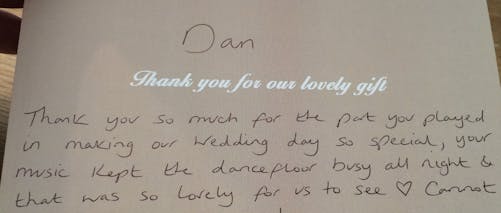 Dan
Thank you for our lovely gift
Thank you so much for the part you played
in making our wedding day so special, your
music kept the dancefloor busy all night &
that was so lovely for us to see ♡ Cannot